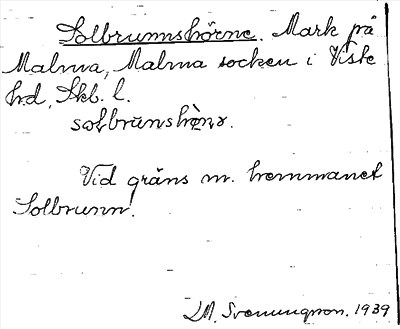 Solbrunnshörne. Mark på
Malma, Malma socken i Viste
hd, Skb. l.
sœlbrunshö̀nɿ.
Vid gräns m. hemmanet
Solbrunn.
M. Svenungsson. 1939